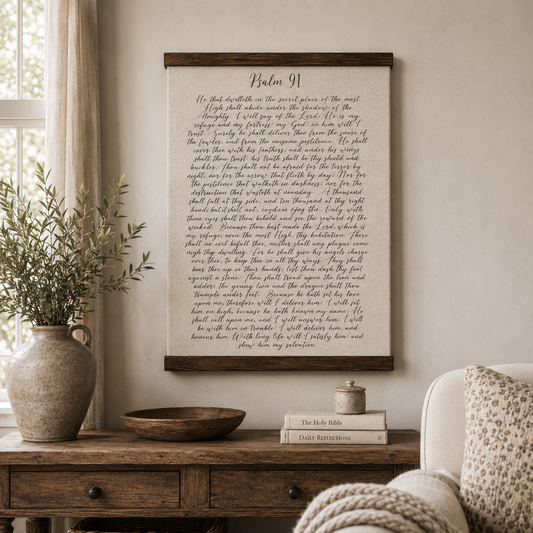 Psalm 91
He that dwelleth in the secret place of the most
High shall abide under the shadow of the
Almighty. I will say of the Lord, He is my
refuge and my fortress: my God; in him will I
trust. Surely he shall deliver thee from the snare of
the fowler, and from the noisome pestilence. He shall
cover thee with his feathers, and under his wings
shalt thou trust: his truth shall be thy shield and
buckler. Thou shalt not be afraid for the terror by
night; nor for the arrow that flieth by day; Nor for
the pestilence that walketh in darkness; nor for the
destruction that wasteth at noonday. A thousand
shall fall at thy side, and ten thousand at thy right
hand; but it shall not, nigh thee. Only with
thine eyes shalt thou behold and see the reward of the
wicked. Because thou hast made the Lord, which is
my refuge, even the most High, thy habitation; There
shall no evil befall thee, neither shall any plague come
nigh thy dwelling. For he shall give his angels charge
over thee, to keep thee in all thy ways. They shall
bear thee up in their hands, lest thou dash thy foot
against a stone. Thou shalt tread upon the lion and
adder: the young lion and the dragon shalt thou
trample under feet. Because he hath set his love
upon me, therefore will I deliver him: I will set
him on high, because he hath known my name. He
shall call upon me, and I will answer him: I will
be with him in trouble; I will deliver him, and
honour him. With long life will I satisfy him, and
shew him my salvation.
The Holy Bible
DAILY REFLECTIONS